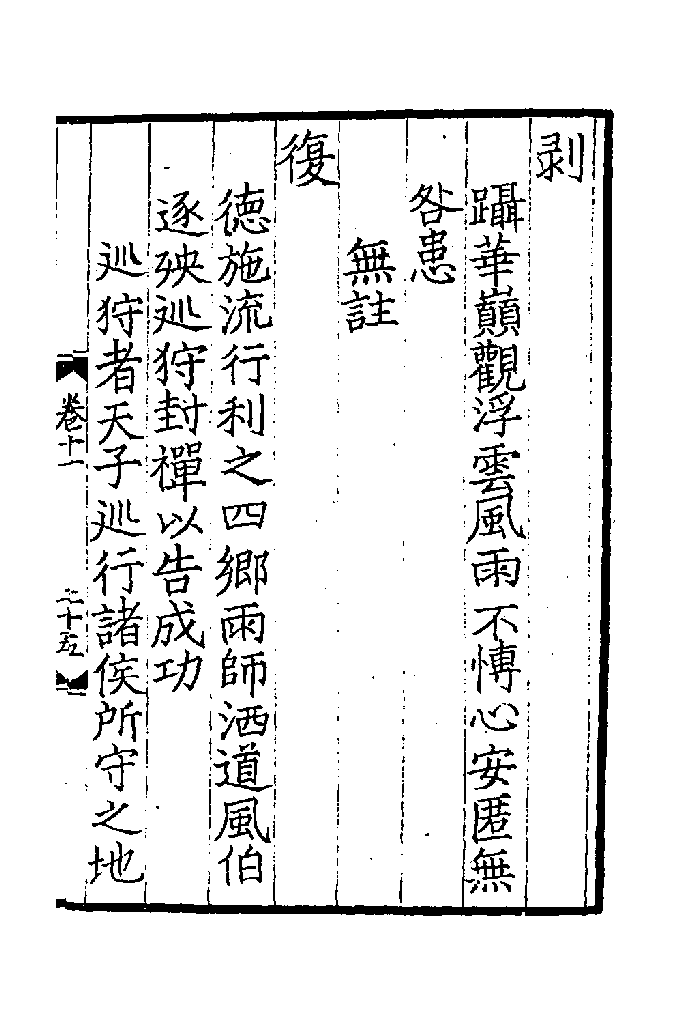 剥
躡華巔觀浮雲風雨不愽心安匿無
咎患
無註
復
德施流行利之四鄉雨師洒道風伯
逐殃廵狩封禪以告成功
廵狩者天子廵行諸侯所守之地
卷十一
二十五